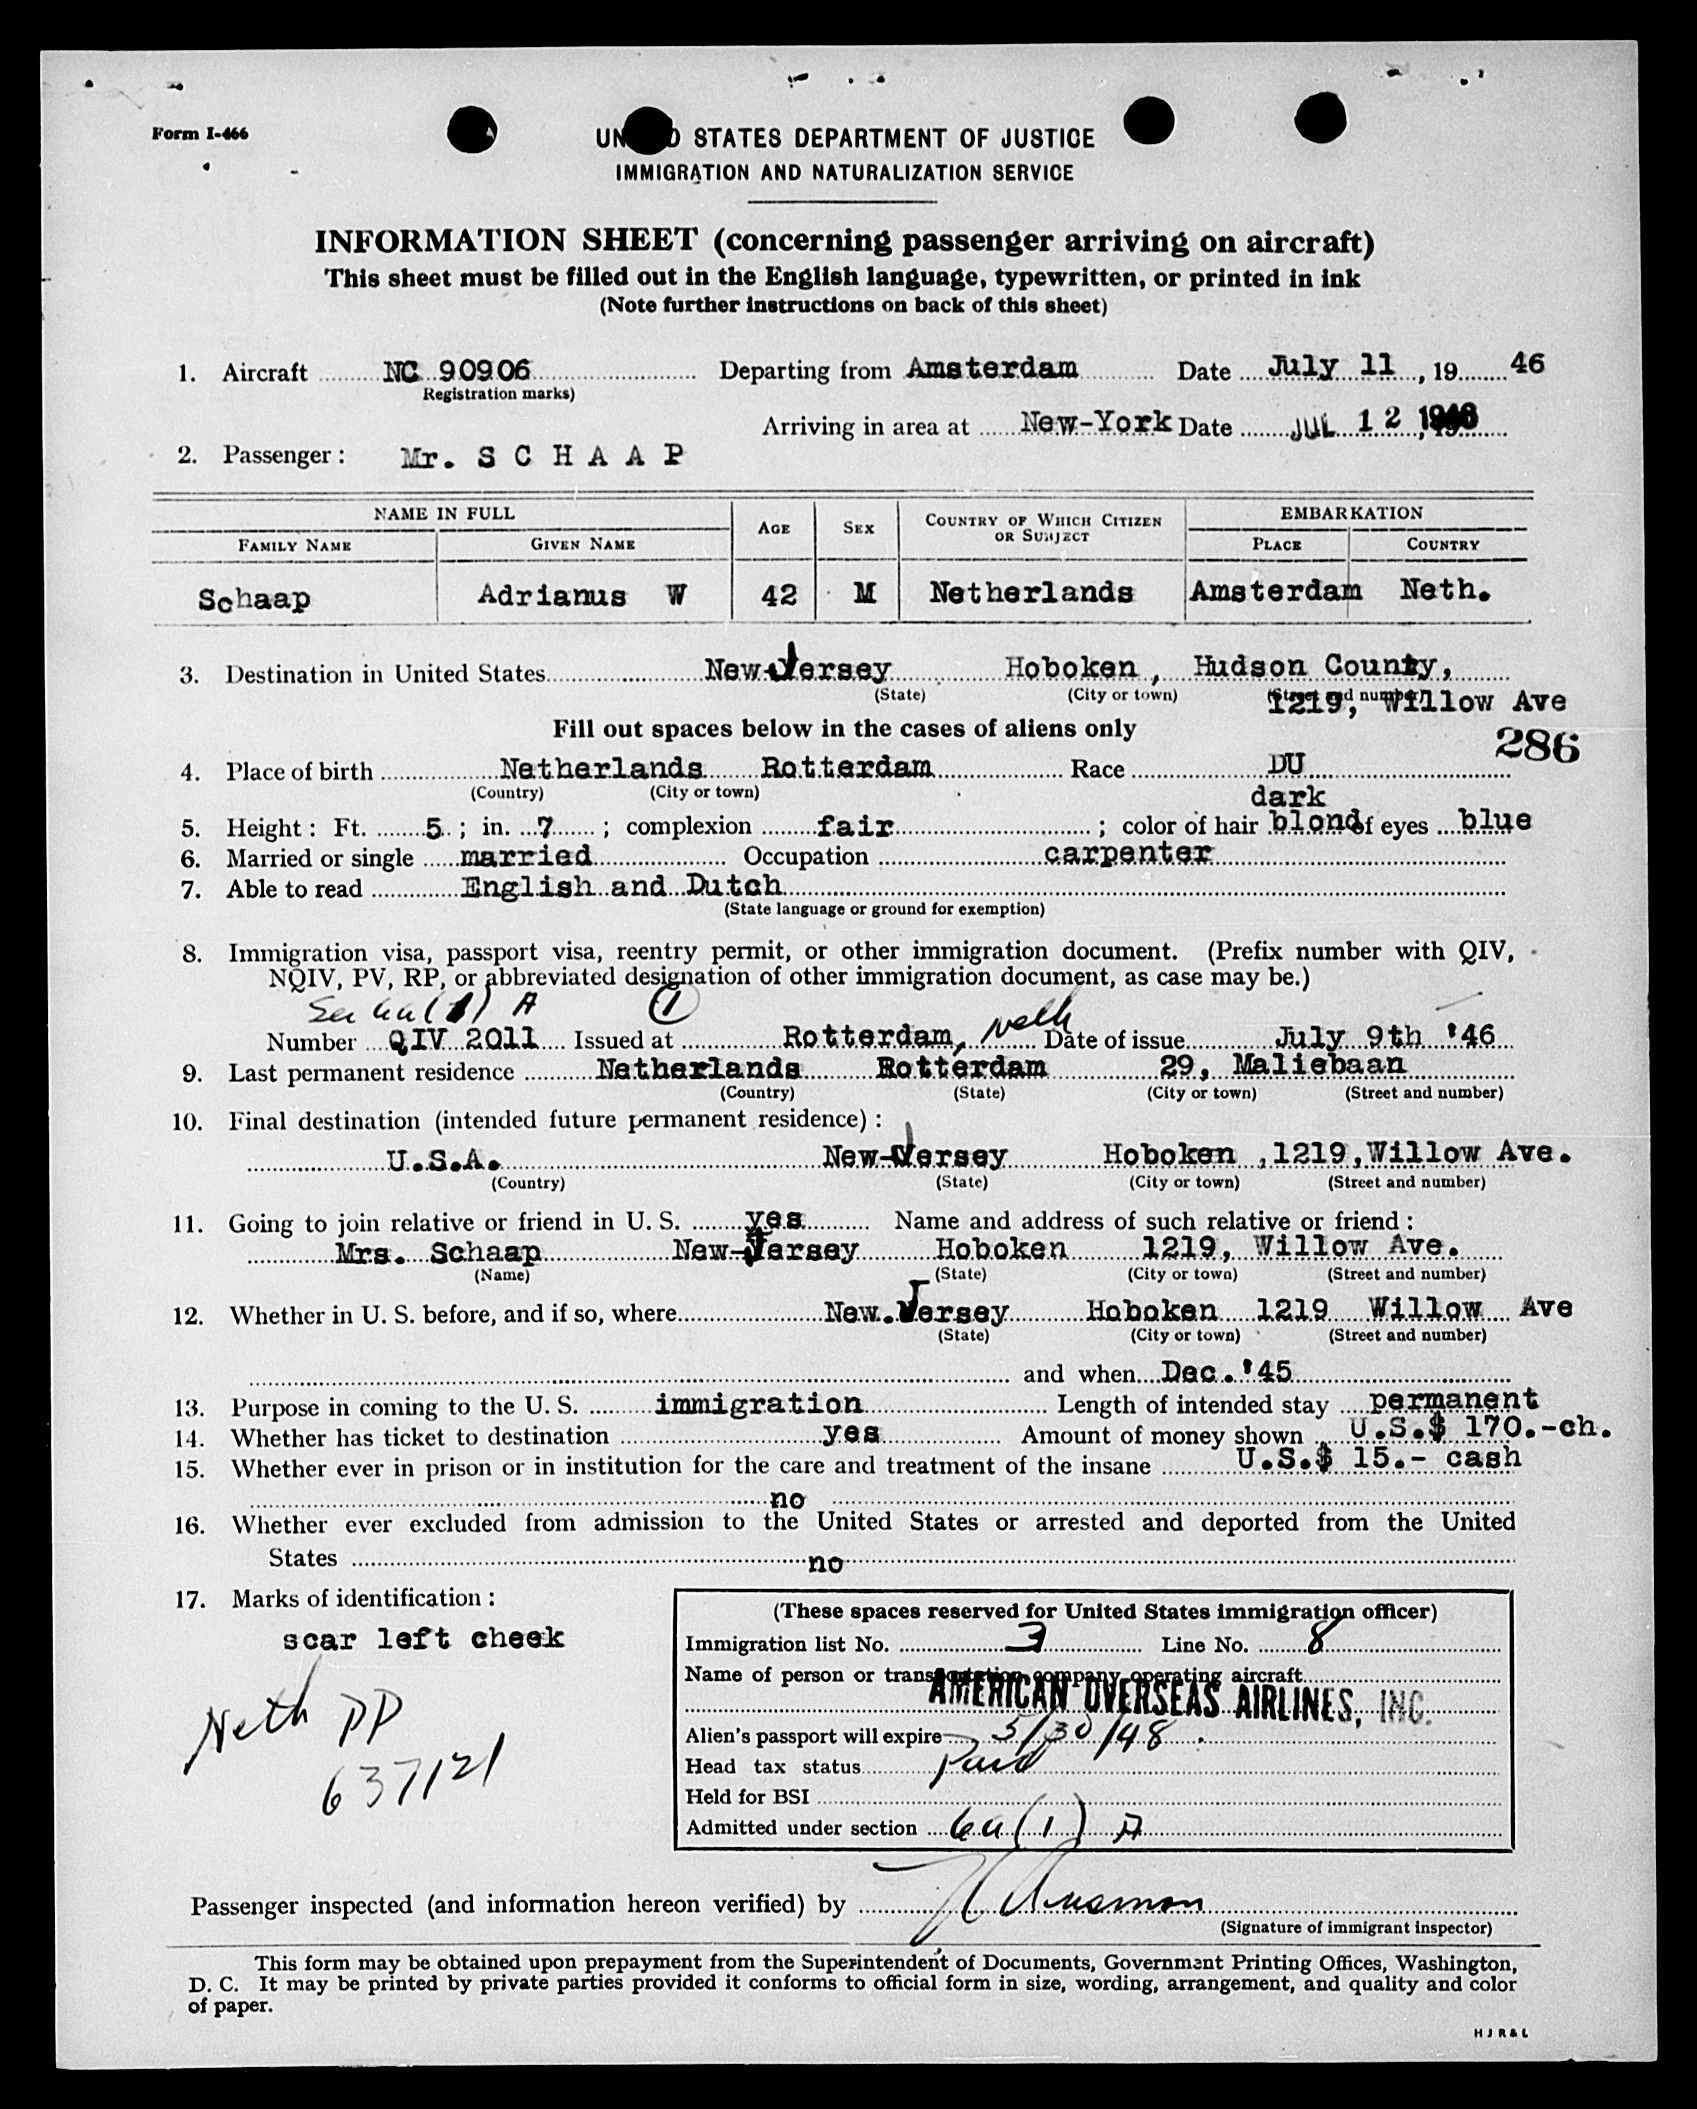 Form I-466
UNITED STATES DEPARTMENT OF JUSTICE
IMMIGRATION AND NATURALIZATION SERVICE
INFORMATION SHEET (concerning passenger arriving on aircraft)
This sheet must be filled out in the English language, typewritten, or printed in ink
(Note further instructions on back of this sheet)
1. Aircraft NC 90906 Departing from Amsterdam Date July 11, 19 46
Registration marks)
Arriving in area at New-York Date JUL 12 1946
2. Passenger: Mr. S C H A A P
NAME IN FULL AGE SEX COUNTRY OF WHICH CITIZEN OR SUBJECT EMBARKATION
FAMILY NAME GIVEN NAME PLACE COUNTRY
Schaap Adrianus W 42 M Netherlands Amsterdam Neth.
3. Destination in United States New-Jersey Hoboken, Hudson County,
(State) (City or town) (Street and number)
1219, Willow Ave
Fill out spaces below in the cases of aliens only
286
4. Place of birth Netherlands Rotterdam Race DU
(Country) (City or town)
dark
5. Height: Ft. 5; in. 7; complexion fair; color of hair blond of eyes blue
6. Married or single married Occupation carpenter
7. Able to read English and Dutch
(State language or ground for exemption)
8. Immigration visa, passport visa, reentry permit, or other immigration document. (Prefix number with QIV,
NQIV, PV, RP, or abbreviated designation of other immigration document, as case may be.)
Sec 4a(1) A 1
Number QIV 2011 Issued at Rotterdam, Neth Date of issue July 9th '46
9. Last permanent residence Netherlands Rotterdam 29, Maliebaan
(Country) (State) (City or town) (Street and number)
10. Final destination (intended future permanent residence):
U.S.A. New-Jersey Hoboken ,1219,Willow Ave.
(Country) (State) (City or town) (Street and number)
11. Going to join relative or friend in U. S. yes Name and address of such relative or friend:
Mrs. Schaap New-Jersey Hoboken 1219, Willow Ave.
(Name) (State) (City or town) (Street and number)
12. Whether in U. S. before, and if so, where New.Jersey Hoboken 1219 Willow Ave
(State) (City or town) (Street and number)
and when Dec. '45
13. Purpose in coming to the U. S. immigration Length of intended stay permanent
14. Whether has ticket to destination yes Amount of money shown U.S.$ 170.-ch.
15. Whether ever in prison or in institution for the care and treatment of the insane U.S.$ 15.- cash
no
16. Whether ever excluded from admission to the United States or arrested and deported from the United
States no
17. Marks of identification:
scar left cheek
Neth PP
637121
(These spaces reserved for United States immigration officer)
Immigration list No. 3 Line No. 8
Name of person or transportation company operating aircraft
AMERICAN OVERSEAS AIRLINES, INC.
Alien's passport will expire 5/30/48
Head tax status Paid
Held for BSI
Admitted under section 6a(1) A
Passenger inspected (and information hereon verified) by
(Signature of immigrant inspector)
This form may be obtained upon prepayment from the Superintendent of Documents, Government Printing Offices, Washington,
D. C. It may be printed by private parties provided it conforms to official form in size, wording, arrangement, and quality and color
of paper.
H J R & L